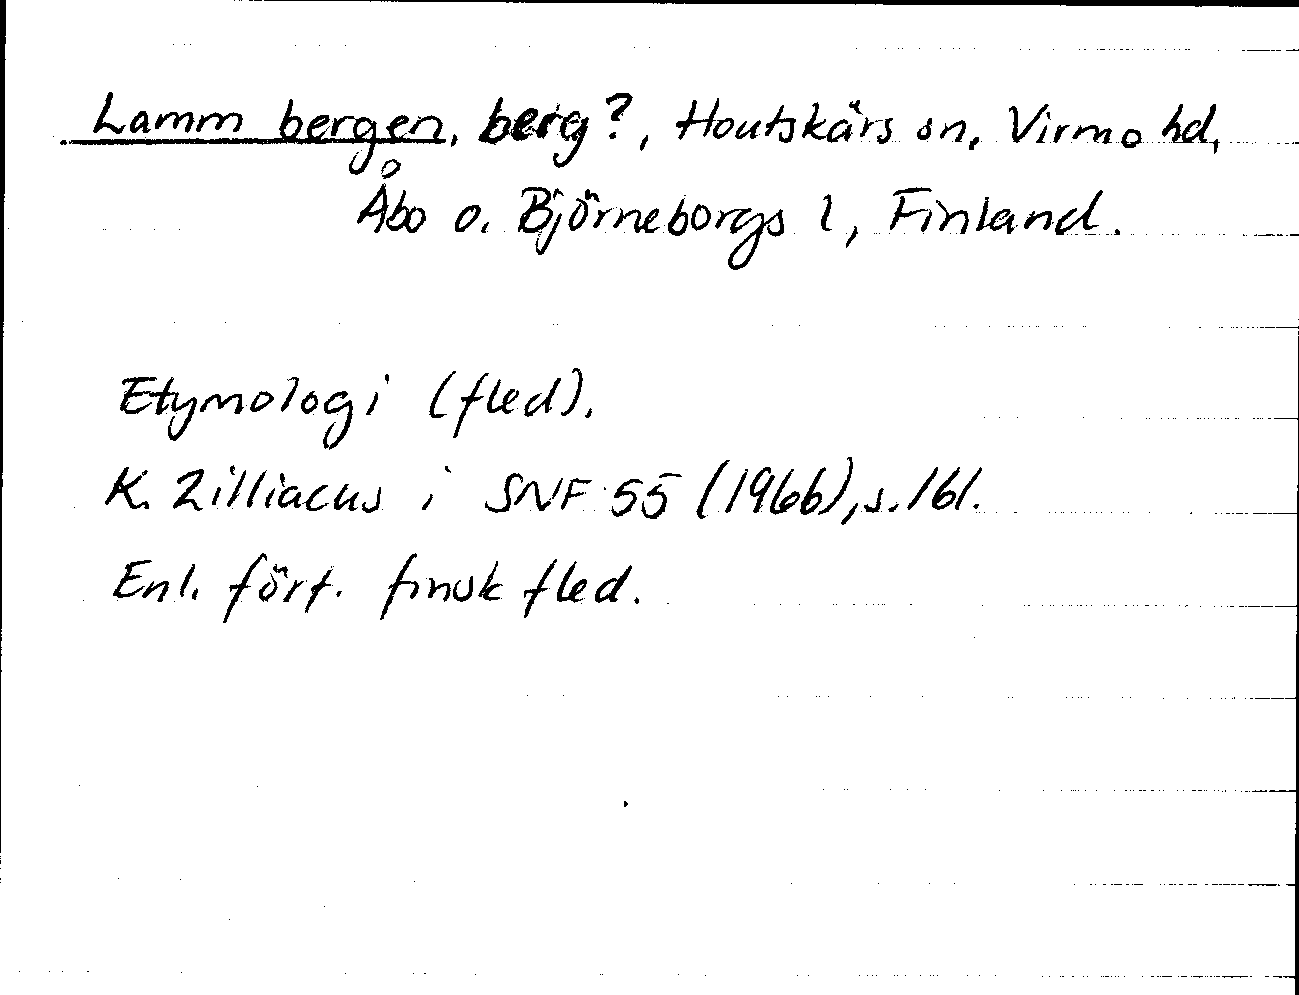 Lamm bergen, berg?, Houtskärs sn, Virmo hd,
Åbo o. Björneborgs l, Finland.
Etymologi (fled).
K. Zilliacus i SNF 55 (1966), s. 161.
Enl. förf. finsk fled.